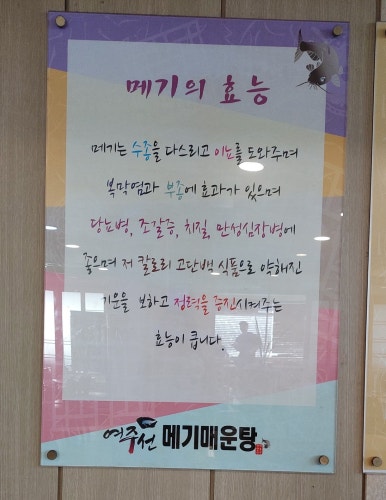 메기의 효능
메기는 수종을 다스리고 이뇨를 도와주며
복막염과 부종에 효과가 있으며
당뇨병, 조갈증, 치질, 만성심장병에
좋으며 저 칼로리 고단백 식품으로 약해진
기운을 보하고 정력을 증진시켜주는
효능이 큽니다.
여주선 메기매운탕